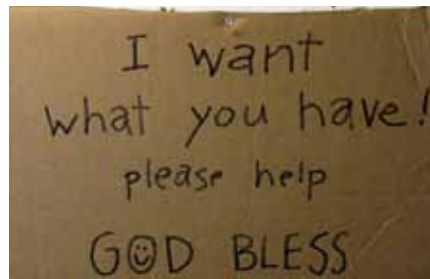 I want
what you have!
please help
GOD BLESS